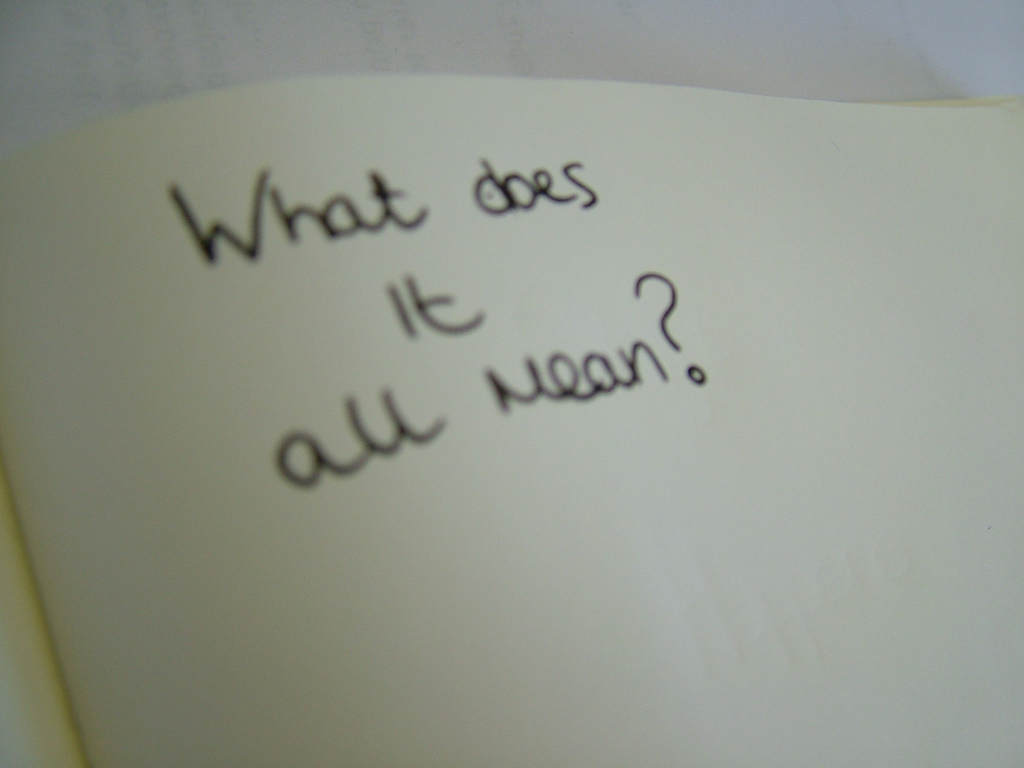 What does
It
all Mean?